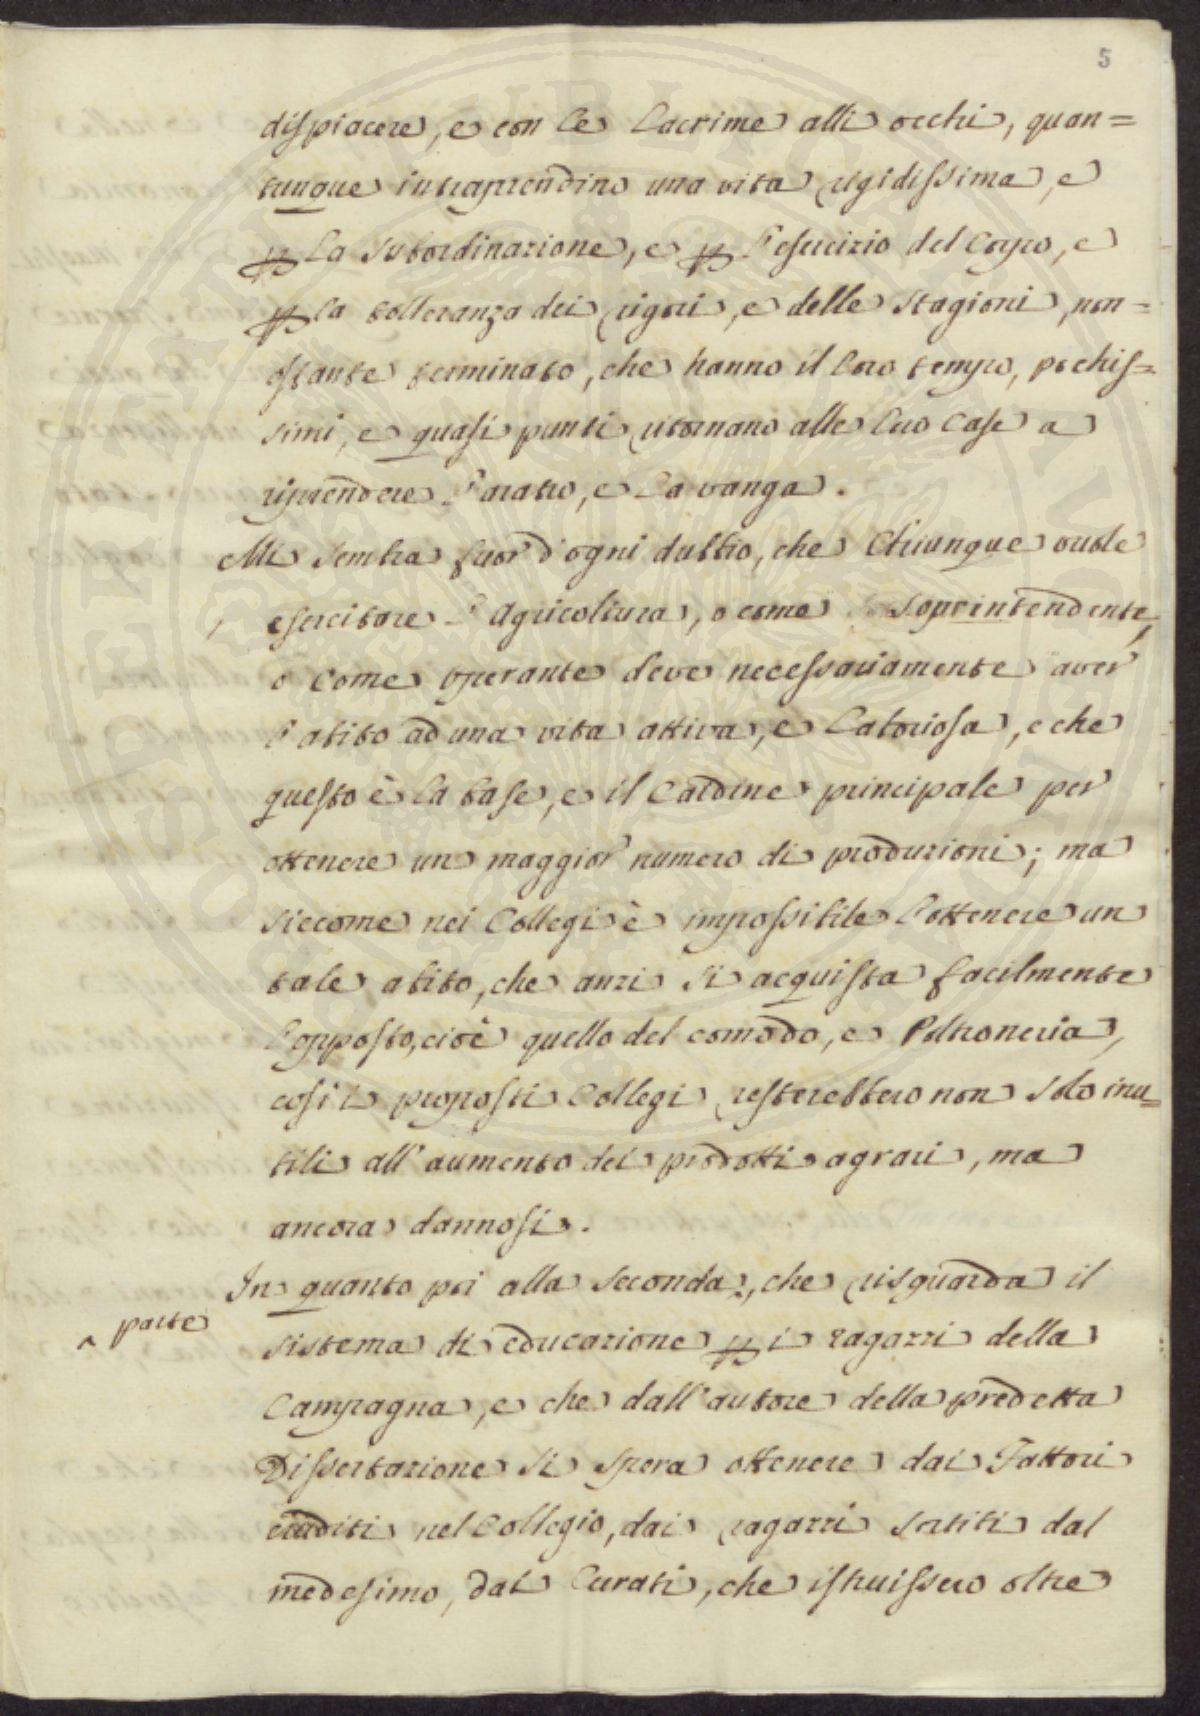 5
dispiacere, e con le lacrime alli occhi, quan=
tunque intraprendino una vita rigidissima, e
p la subordinazione, e p l'esercizio del Corpo, e
p la tolleranza dei rigori, e delle stagioni, non=
ostante terminato, che hanno il loro tempo, pochis=
simi, e quasi punti ritornano alle luo Case a
riprendere l'aratro, e la vanga.
Mi sembra fuor d'ogni dubbio, che Chiunque vuole
esercitare l'Agricoltura, o come Soprintendente,
o come operante deve necessariamente aver
l'abito ad una vita attiva, e laboriosa, e che
questo è la base, e il Cardine principale per
ottenere un maggior numero di produzioni; ma
siccome nei Collegi è impossibile l'ottenere un
tale abito, che anzi si acquista facilmente
l'opposto, cioè quello del comodo, e Poltroneria,
così i proposti Collegi resterebbero non solo inu=
tili all'aumento dei prodotti agrari, ma
ancora dannosi.
In quanto poi alla seconda ^, che risguarda il
^ parte
sistema di educazione p i ragazzi della
Campagna, e che dall'autore della predetta
Dissertazione si spera ottenere dai Fattori
eruditi nel Collegio, dai ragazzi sortiti dal
medesimo, dai Curati, che istruissero oltre